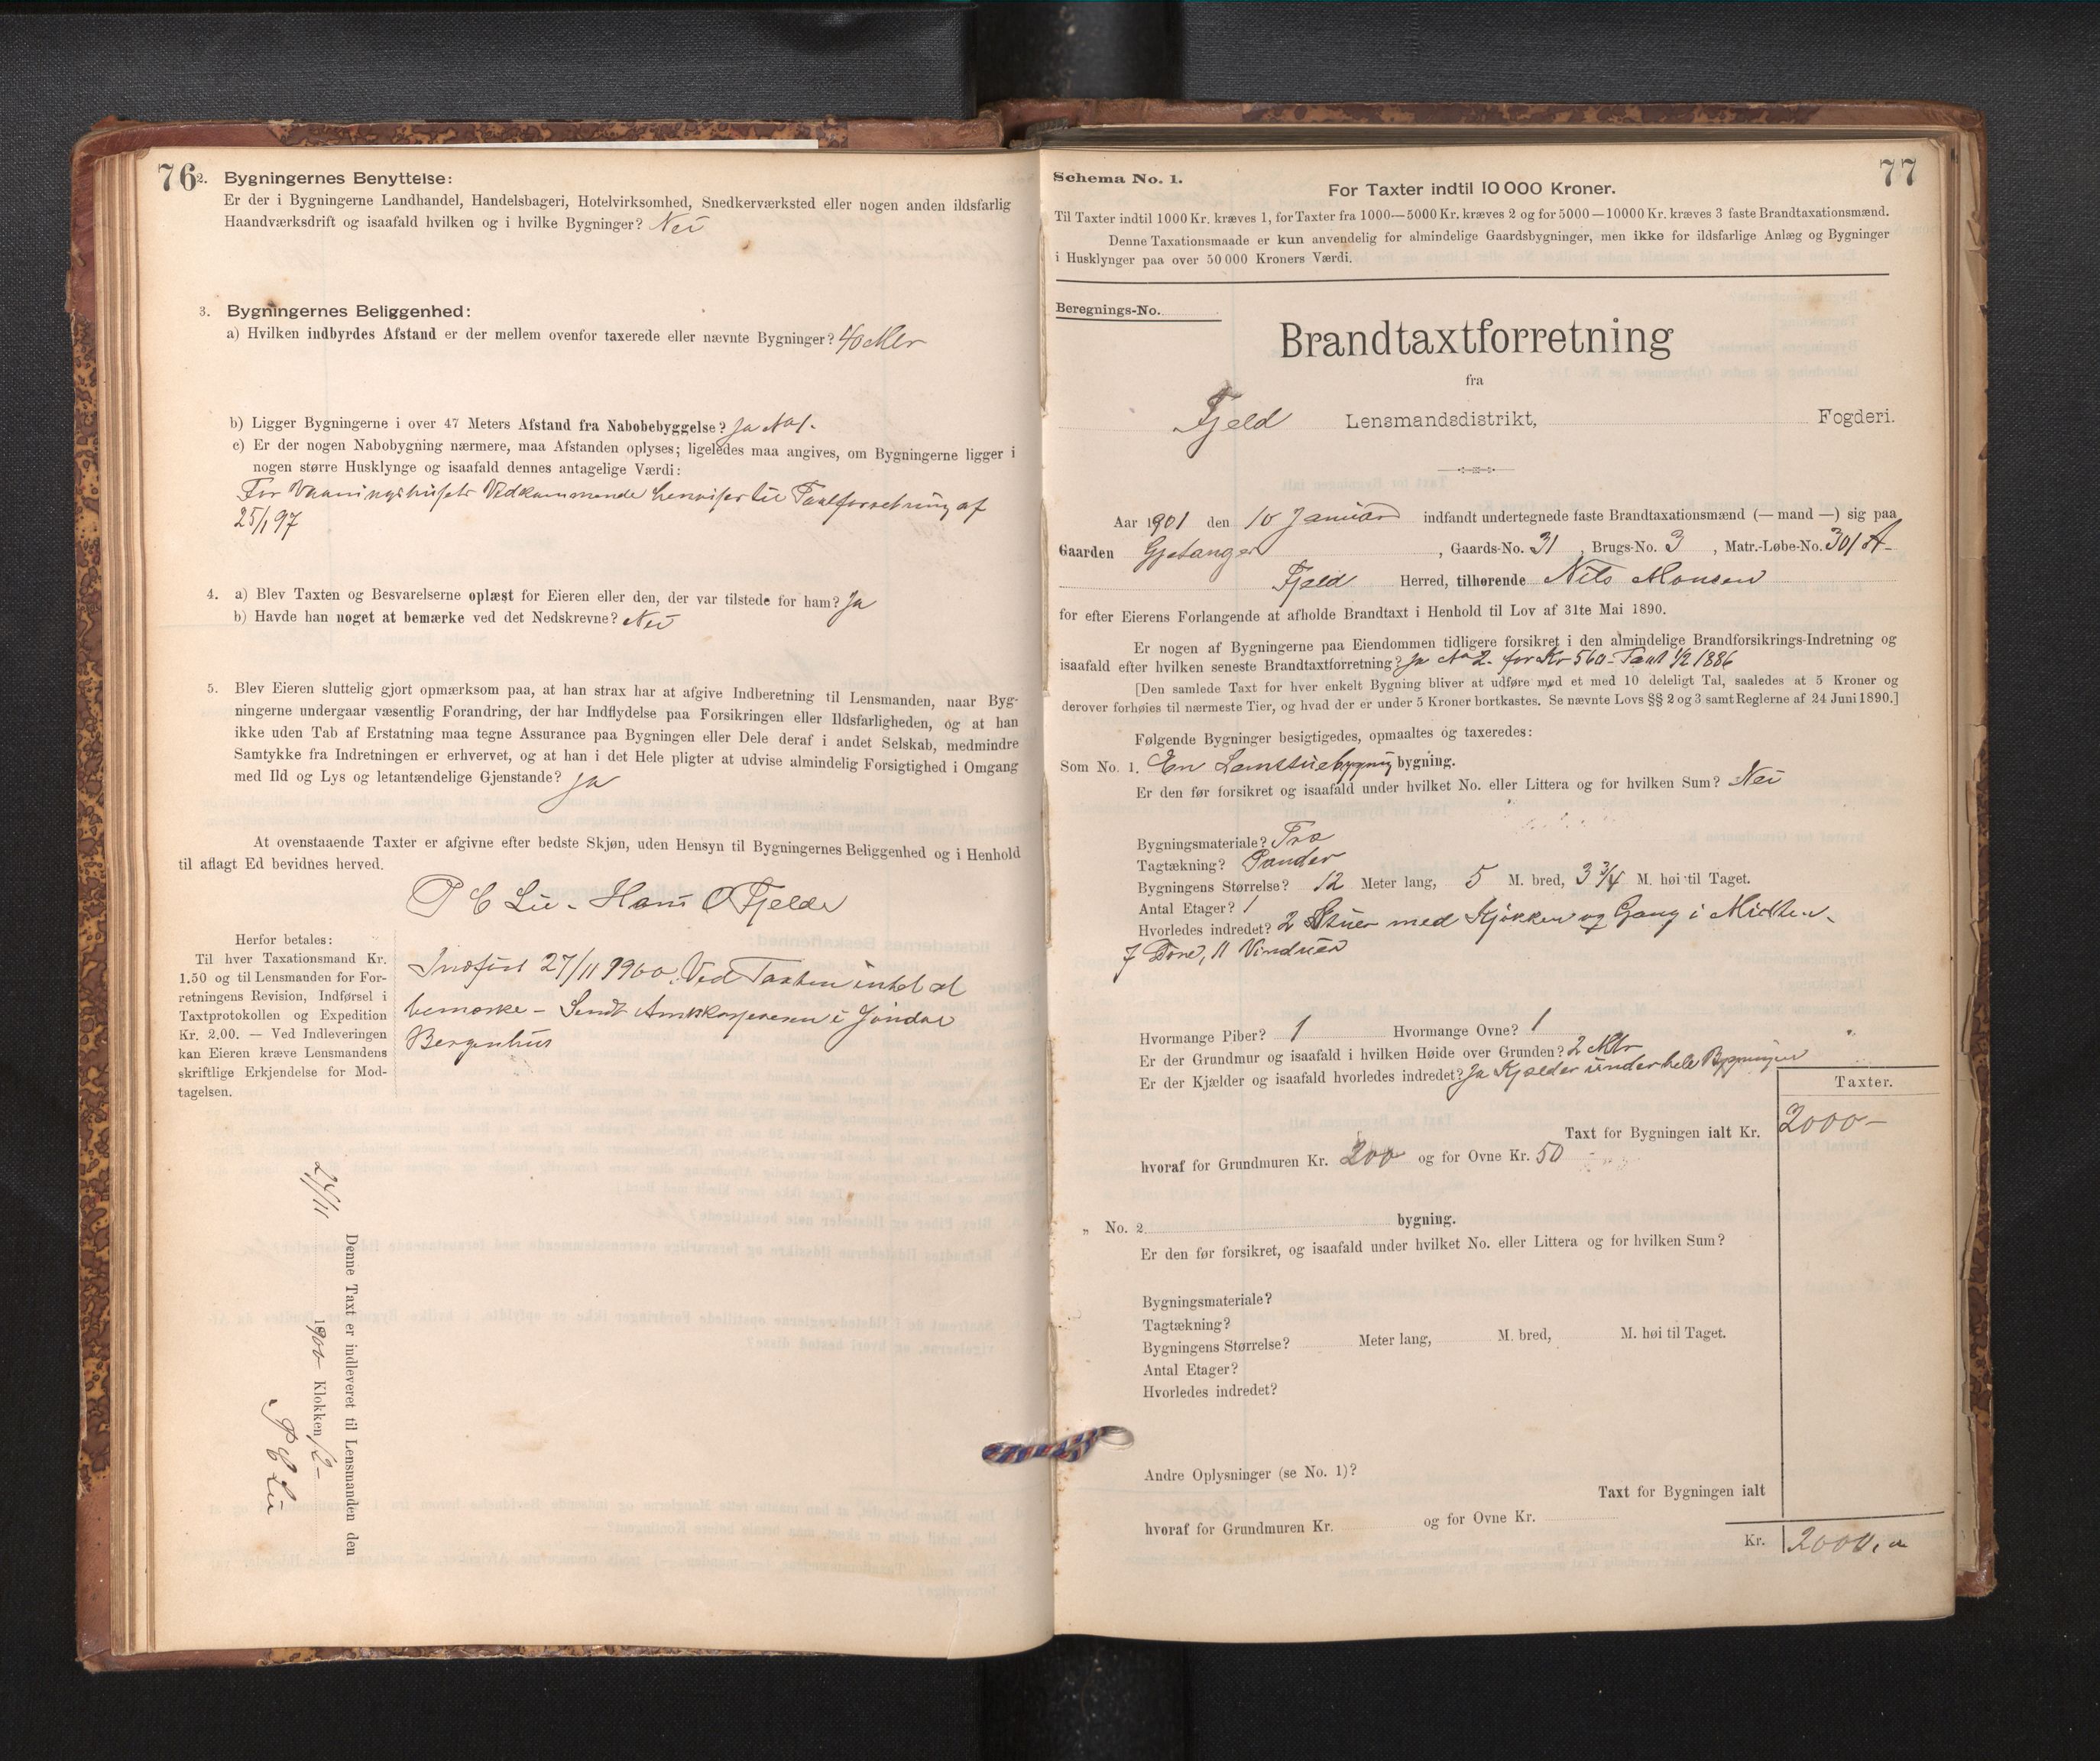 76
2. Bygningernes Benyttelse:
Er der i Bygningerne Landhandel, Handelsbageri, Hotelvirksomhed, Snedkerværksted eller nogen anden ildsfarlig
Haandværksdrift og isaafald hvilken og i hvilke Bygninger? Nei
3. Bygningernes Beliggenhed:
a) Hvilken indbyrdes Afstand er der mellem ovenfor taxerede eller nævnte Bygninger? 40 Mtr
b) Ligger Bygningerne i over 47 Meters Afstand fra Nabobebyggelse? Ja No 1.
c) Er der nogen Nabobygning nærmere, maa Afstanden oplyses; ligeledes maa angives, om Bygningerne ligger i
nogen større Husklynge og isaafald dennes antagelige Værdi:
For Vaaningshusets Vedkommende henvises til Taxtforretning af
25/1 97
4. a) Blev Taxten og Besvarelserne oplæst for Eieren eller den, der var tilstede for ham? Ja
b) Havde han noget at bemærke ved det Nedskrevne? Nei
5. Blev Eieren sluttelig gjort opmærksom paa, at han strax har at afgive Indberetning til Lensmanden, naar Byg-
ningerne undergaar væsentlig Forandring, der har Indflydelse paa Forsikringen eller Ildsfarligheden, og at han
ikke uden Tab af Erstatning maa tegne Assurance paa Bygningen eller Dele deraf i andet Selskab, medmindre
Samtykke fra Indretningen er erhvervet, og at han i det Hele pligter at udvise almindelig Forsigtighed i Omgang
med Ild og Lys og letantændelige Gjenstande? Ja
At ovenstaaende Taxter er afgivne efter bedste Skjøn, uden Hensyn til Bygningernes Beliggenhed og i Henhold
til aflagt Ed bevidnes herved.
P C Lie - Hans O Fjelde
Herfor betales:
Til hver Taxationsmand Kr.
1.50 og til Lensmanden for For-
retningens Revision, Indførsel i
Taxtprotokollen og Expedition
Kr. 2.00. — Ved Indleveringen
kan Eieren kræve Lensmandens
skriftlige Erkjendelse for Mod-
tagelsen.
Indført 27/11 1900. Ved Taxten intet at
bemærke - Sendt Amtskassereren i Søndre
Bergenhus
Denne Taxt er indleveret til Lensmanden den
27/11 1900 Klokken 12 -
P C Lie
77
Schema No. 1.
For Taxter indtil 10 000 Kroner.
Til Taxter indtil 1000 Kr. kræves 1, for Taxter fra 1000—5000 Kr. kræves 2 og for 5000—10000 Kr. kræves 3 faste Brandtaxationsmænd.
Denne Taxationsmaade er kun anvendelig for almindelige Gaardsbygninger, men ikke for ildsfarlige Anlæg og Bygninger
i Husklynger paa over 50 000 Kroners Værdi.
Beregnings-No.
Brandtaxtforretning
fra
Fjeld Lensmandsdistrikt, Fogderi.
Aar 1901 den 10 Januar indfandt undertegnede faste Brandtaxationsmænd (— mand —) sig paa
Gaarden Gjetanger, Gaards-No. 31, Brugs-No. 3, Matr.-Løbe-No. 301 A-
Fjeld Herred, tilhørende Nils Monsen
for efter Eierens Forlangende at afholde Brandtaxt i Henhold til Lov af 31te Mai 1890.
Er nogen af Bygningerne paa Eiendommen tidligere forsikret i den almindelige Brandforsikrings-Indretning og
isaafald efter hvilken seneste Brandtaxtforretning? Ja No 2. for Kr 560 - Taxt 1/2 1886
[Den samlede Taxt for hver enkelt Bygning bliver at udføre med et med 10 deleligt Tal, saaledes at 5 Kroner og
derover forhøies til nærmeste Tier, og hvad der er under 5 Kroner bortkastes. Se nævnte Lovs §§ 2 og 3 samt Reglerne af 24 Juni 1890.]
Følgende Bygninger besigtigedes, opmaaltes og taxeredes:
Som No. 1. En bygning.
Er den før forsikret og isaafald under hvilket No. eller Littera og for hvilken Sum? Nei
Bygningsmateriale? Træ
Tagtækning? Pander
Bygningens Størrelse? 12 Meter lang, 5 M. bred, 3 3/4 M. høi til Taget.
Antal Etager? 1
Hvorledes indredet? 2 Stuer med Kjøkken og Gang i Midten.
7 Døre, 11 Vinduer
Hvormange Piber? 1 Hvormange Ovne? 1
Er der Grundmur og isaafald i hvilken Høide over Grunden? 2 Mtr
Er der Kjælder og isaafald hvorledes indredet? Ja Kjælder under hele Bygningen
Taxter.
Taxt for Bygningen ialt Kr. 2000 -
hvoraf for Grundmuren Kr. 200 og for Ovne Kr. 50
„ No. 2 bygning.
Er den før forsikret, og isaafald under hvilket No. eller Littera og for hvilken Sum?
Bygningsmateriale?
Tagtækning?
Bygningens Størrelse? Meter lang, M. bred, M. høi til Taget.
Antal Etager?
Hvorledes indredet?
Andre Oplysninger (se No. 1)?
Taxt for Bygningen ialt
hvoraf for Grundmuren Kr. og for Ovne Kr.
Kr. 2000,